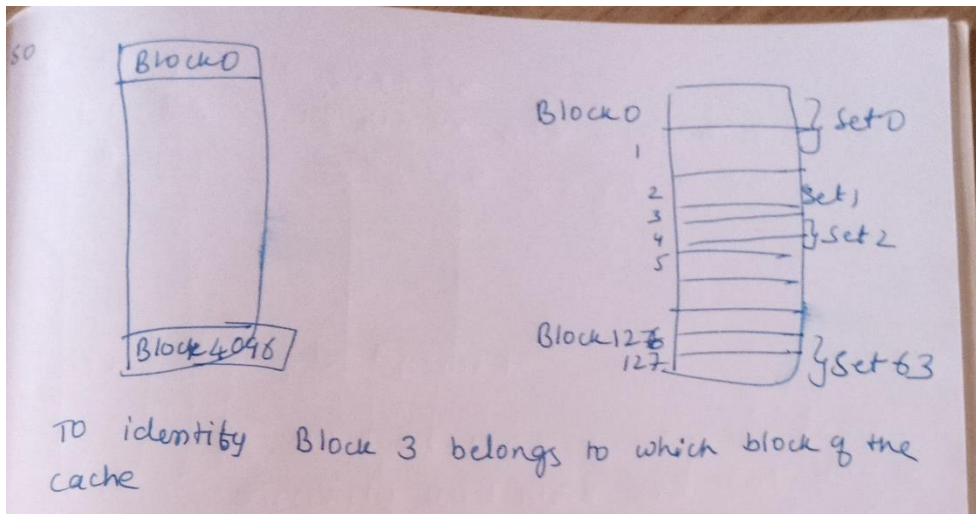 so
Block 0
Block 4096
Block 0
1
2
3
4
5
Block 126
127
Set 0
Set 1
Set 2
Set 63
To identify Block 3 belongs to which block of the
cache